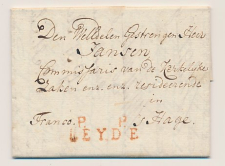 Den WelEdelen Gestrengen Heer
Jansen
Commissaris van de Kerkelijke
Zaken enz. enz. resideerende
in
Franco. P. P. 's Hage.
LEYDE